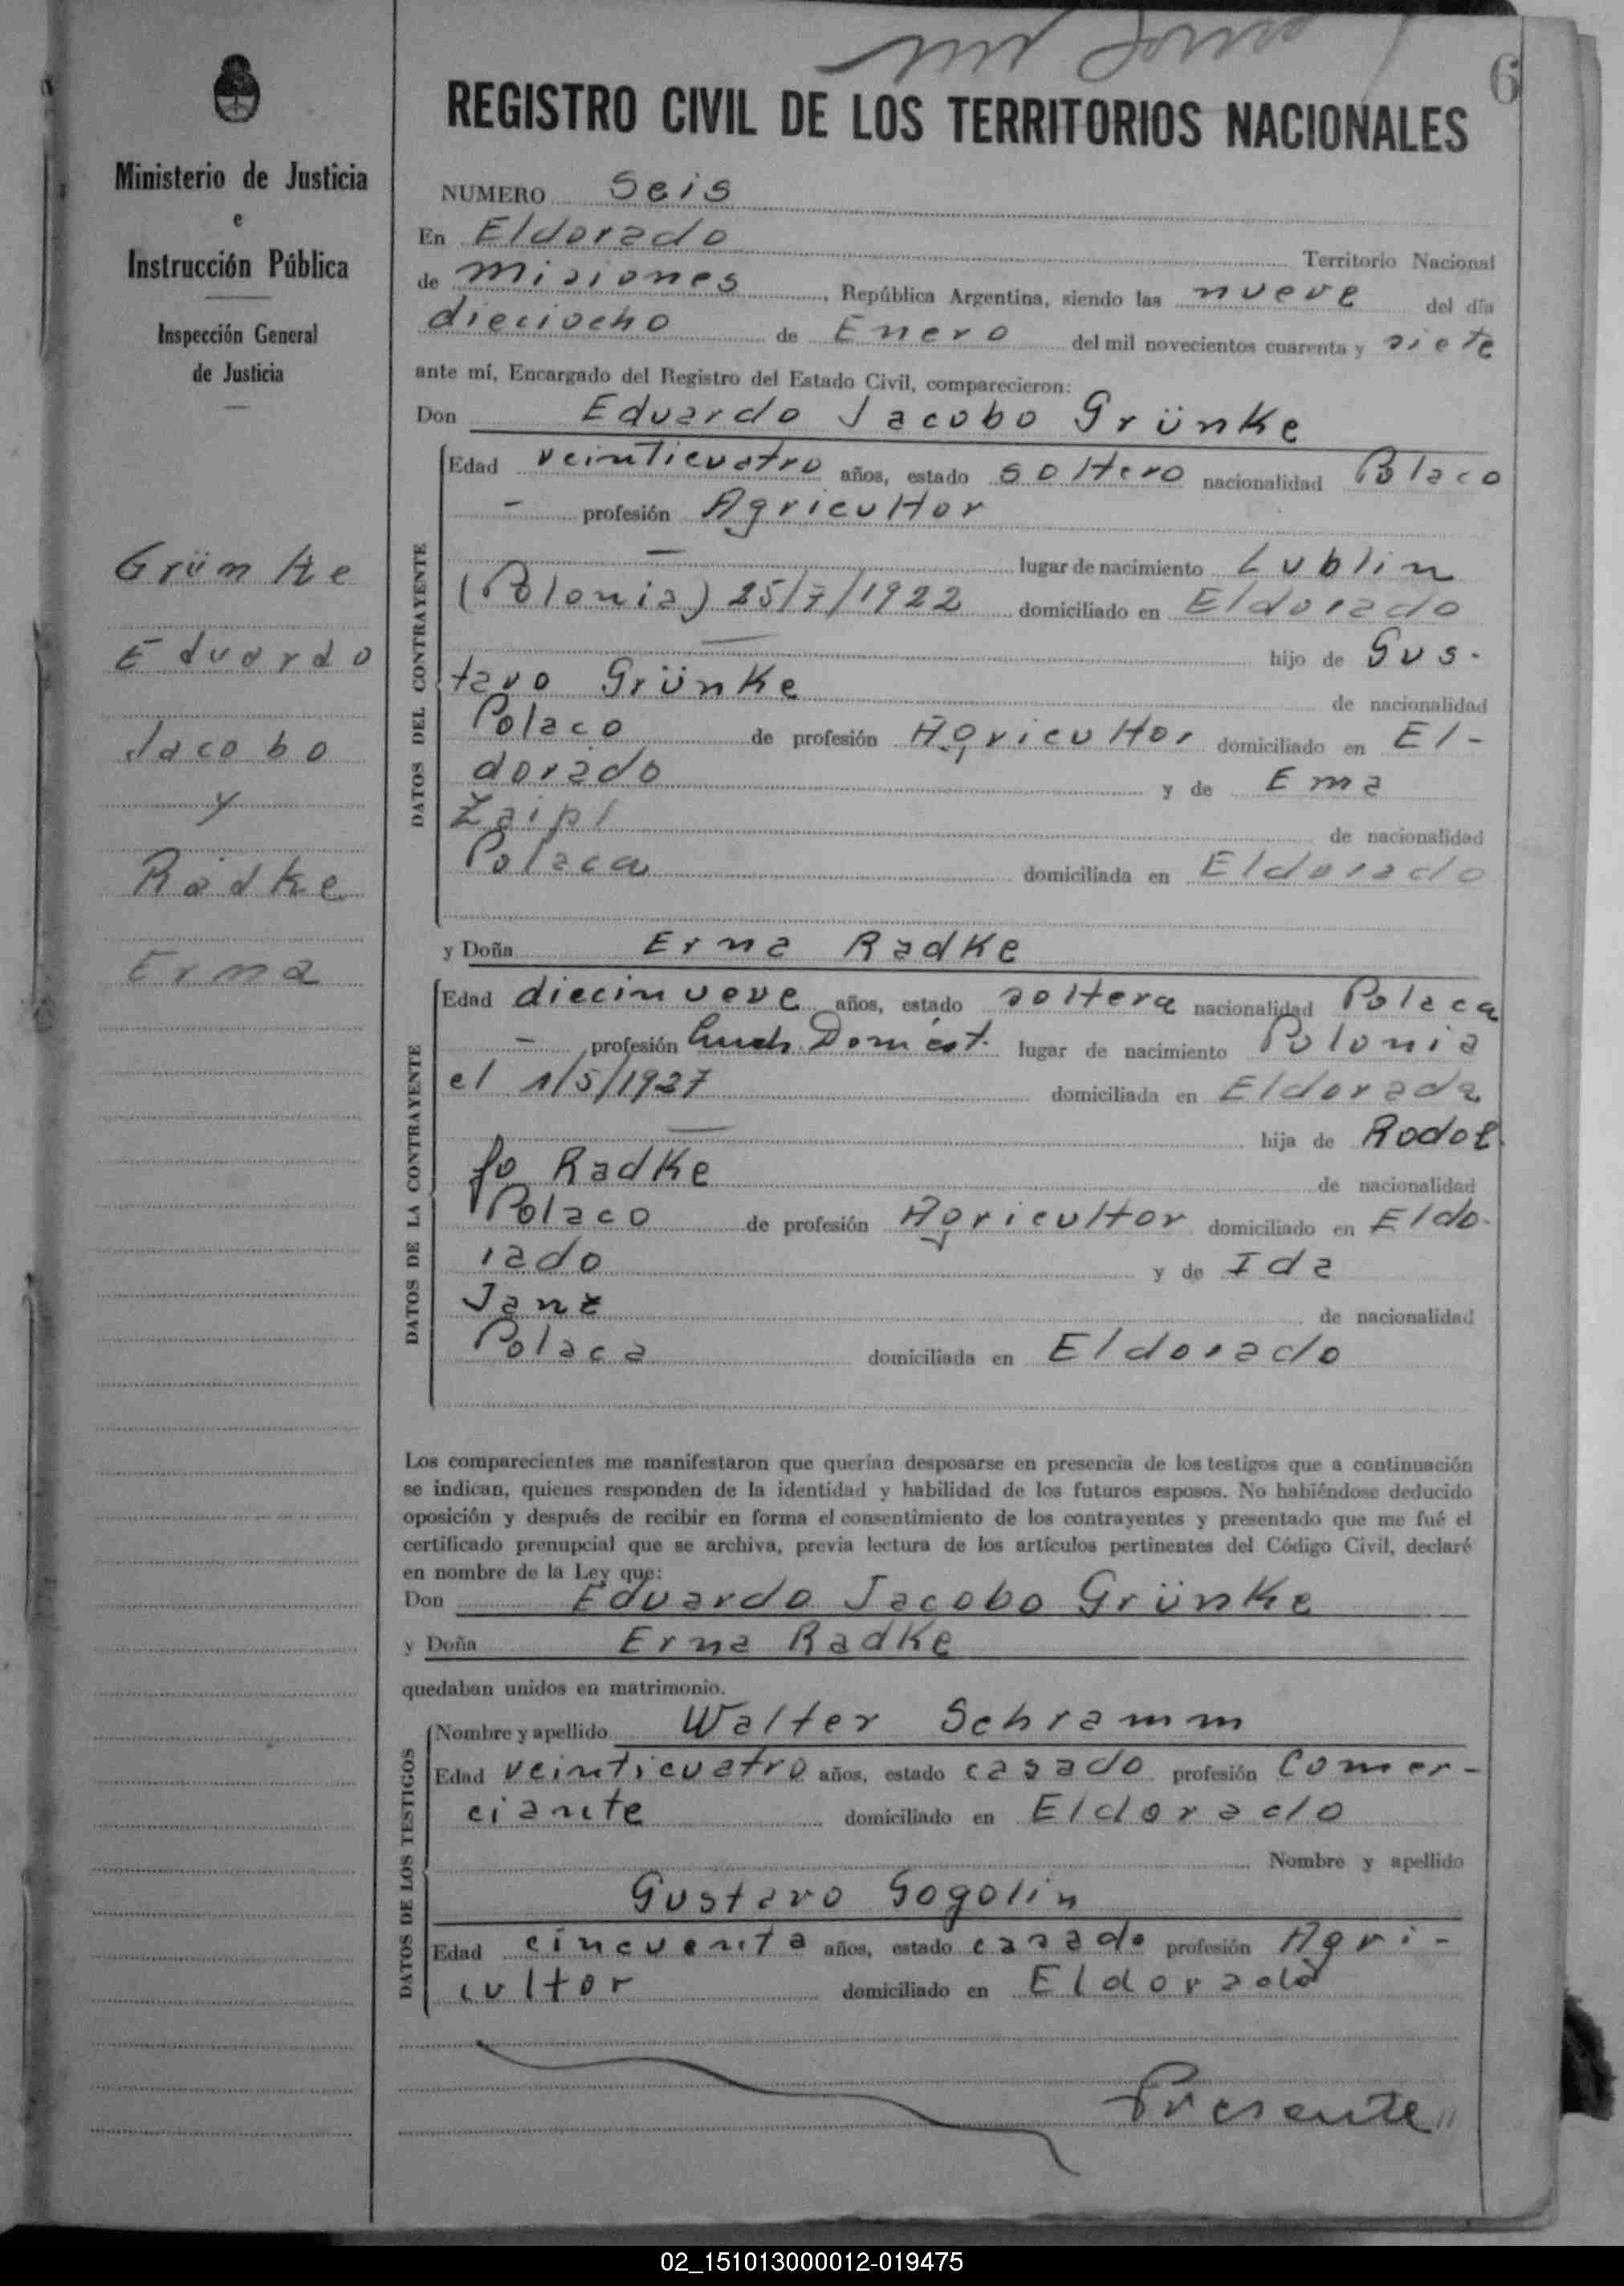 6
REGISTRO CIVIL DE LOS TERRITORIOS NACIONALES
Ministerio de Justicia
e
Instrucción Pública
Inspección General
de Justicia
Grünke
Eduardo
Jacobo
y
Radke
Erma
NUMERO Seis
En Eldorado Territorio Nacional
de Misiones, República Argentina, siendo las nueve del día
dieciocho de Enero del mil novecientos cuarenta y siete
ante mí, Encargado del Registro del Estado Civil, comparecieron:
Don Eduardo Jacobo Grünke
DATOS DEL CONTRAYENTE
Edad veinticuatro años, estado soltero nacionalidad Polaco
- profesión Agricultor
— lugar de nacimiento Lublin
(Polonia) 25/7/1922 domiciliado en Eldorado
— hijo de Gus-
tavo Grünke de nacionalidad
Polaco de profesión Agricultor domiciliado en El-
dorado y de Ema
Zaipl de nacionalidad
Polaca domiciliada en Eldorado
y Doña Erna Radke
DATOS DE LA CONTRAYENTE
Edad diecinueve años, estado soltera nacionalidad Polaca
- profesión Domést. lugar de nacimiento Polonia
el 1/5/1927 domiciliada en Eldorado
— hija de Rodol
fo Radke de nacionalidad
Polaco de profesión Agricultor domiciliado en Eldo-
rado y de Ida
Janz de nacionalidad
Polaca domiciliada en Eldorado
Los comparecientes me manifestaron que querían desposarse en presencia de los testigos que a continuación
se indican, quienes responden de la identidad y habilidad de los futuros esposos. No habiéndose deducido
oposición y después de recibir en forma el consentimiento de los contrayentes y presentado que me fué el
certificado prenupcial que se archiva, previa lectura de los artículos pertinentes del Código Civil, declaré
en nombre de la Ley que:
Don Eduardo Jacobo Grünke
y Doña Erna Radke
quedaban unidos en matrimonio.
DATOS DE LOS TESTIGOS
Nombre y apellido Walter Schramm
Edad veinticuatro años, estado casado profesión Comer-
ciante domiciliado en Eldorado
Nombre y apellido
Gustavo Gogolin
Edad cincuenta años, estado casado profesión Agri-
cultor domiciliado en Eldorado
Presente"
02_151013000012-019475